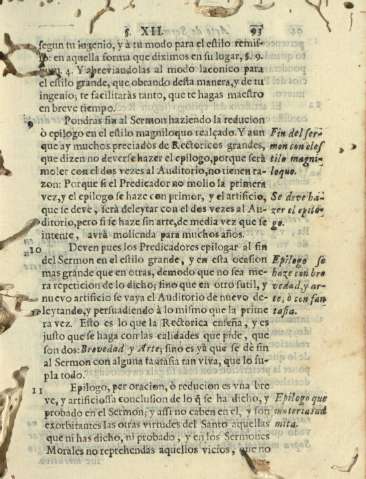 §. XII. 93
segun tu ingenio, y à tu modo para el estilo remis-
so: en aquella forma que diximos en su lugar, §. 9.
num. 4. Y abreviandolas al modo laconico para
el estilo grande, que obrando desta manera, y de tu
ingenio, te facilitarás tanto, que te hagas maestro
en breve tiempo.
9 Pondras fin al Sermon haziendo la reducion
ò epilogo en el estilo magniloquo realçado. Y aun
que ay muchos preciados de Rectoricos grandes,
que dizen no deverse hazer el epilogo, porque serà
moler con el dos vezes al Auditorio, no tienen ra-
zon: Porque si el Predicador no molio la primera
vez, y el epilogo se haze con primor, y el artificio,
que se deve, serà deleytar con el dos vezes al Au-
ditorio, pero si se haze sin arte, de media vez que se
intente, avrà molienda para muchos años.
Fin del ser-
mon con el es
tilo magni-
loquo.
Se deve ha-
zer el epilo-
go.
10 Deven pues los Predicadores epilogar al fin
del Sermon en el estilo grande, y en esta ocasion
mas grande que en otras, demodo que no sea me-
ra repeticion de lo dicho; sino que en otro sutil, y
nuevo artificio se vaya el Auditorio de nuevo de-
leytando, y persuadiendo à lo mismo que la prime
ra vez. Esto es lo que la Rectorica enseña, y es
justo que se haga con las calidades que pide, que
son dos: Brevedad y Arte, sino es yà que se dè fin
al Sermon con alguna fantasia tan viva, que lo su-
pla todo.
Epilogo se
haze con bre
vedad, y ar-
te, ò con fan
tasia.
11 Epilogo, peroracion, ò reducion es vna bre
ve, y artificiosa conclusion de lo q̃ se ha dicho, y
probado en el Sermon; y assi no caben en el, y son
exorbitantes las otras virtudes del Santo aquellas
que ni has dicho, ni probado, y en los Sermones
Morales no reprehendas aquellos vicios, que no
Epilogo que
materias ad
mita.